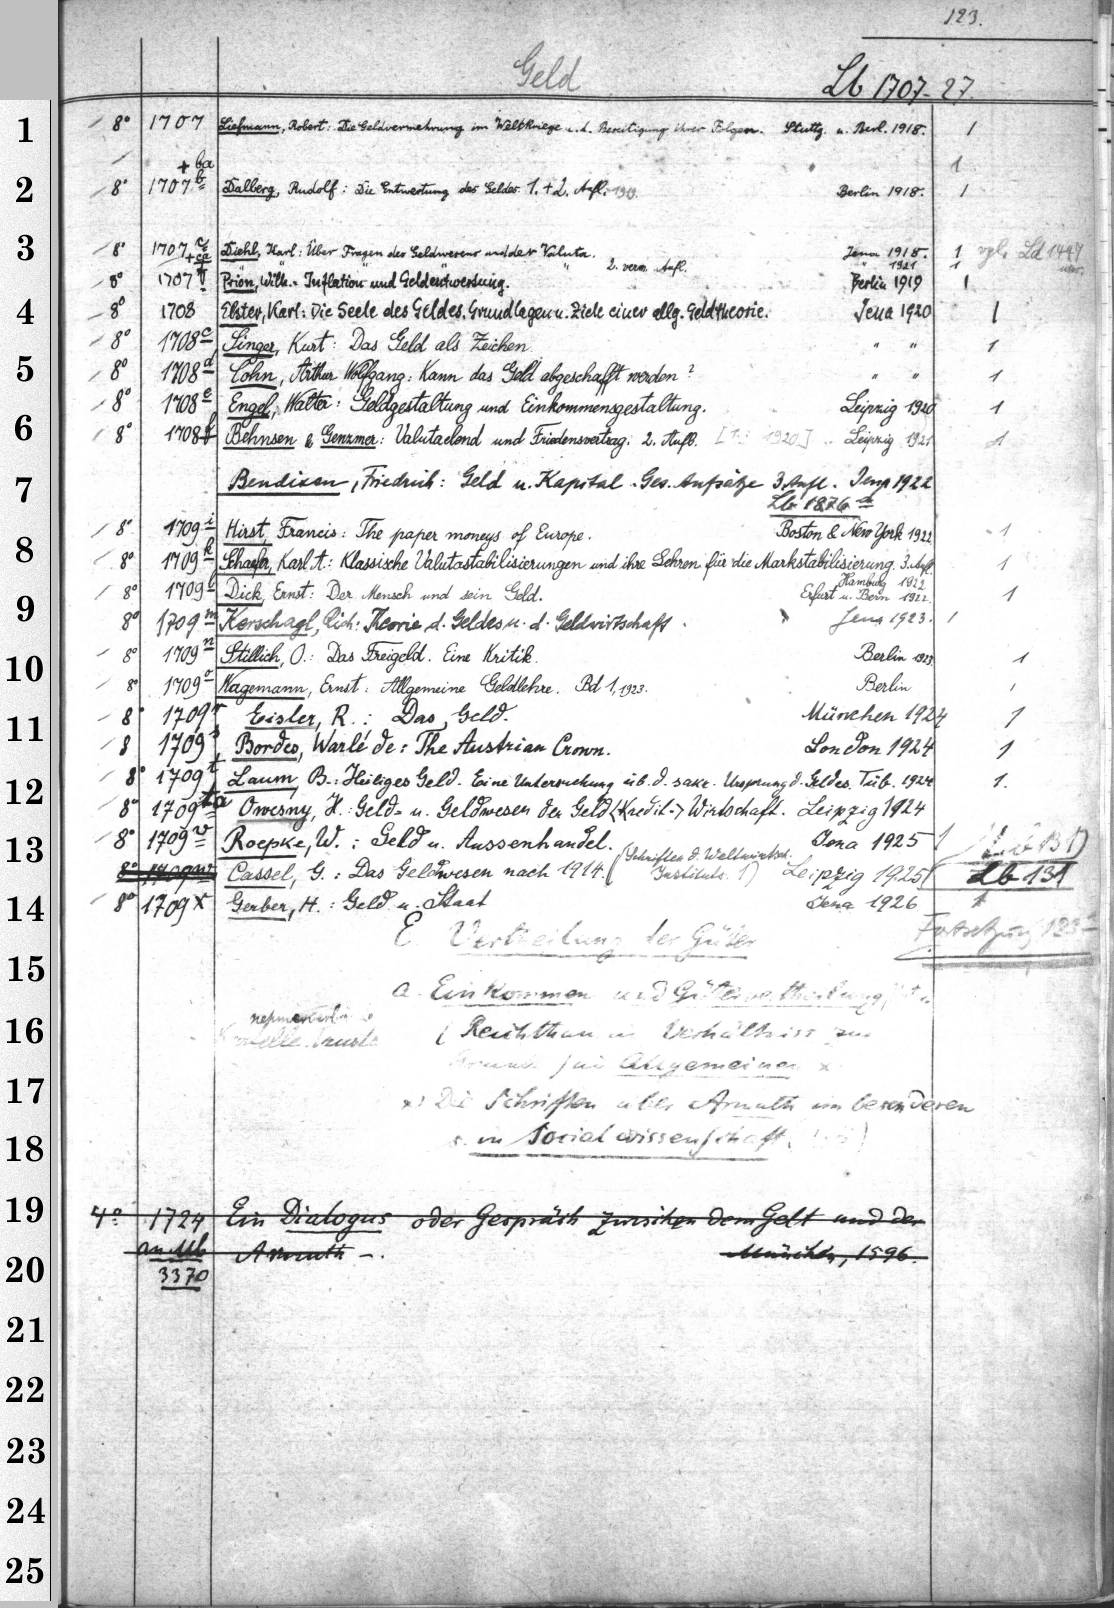 123.
Geld Lb 1707-27.
1 8° 1707 Liefmann, Robert: Die Geldvermehrung im Weltkriege u. d. Beseitigung ihrer Folgen. Stuttg. u. Berl. 1918. 1
+ ba 1
2 8° 1707 b Dalberg, Rudolf: Die Entwertung des Geldes. 1.+2. Aufl. Berlin 1918. 1
3 8° 1707 c Diehl, Karl: Über Fragen des Geldwesens und der Valuta. Jena 1918. 1 vgl. Ld 1447
+ ca " 2. verm. Aufl. " 1921 1
8° 1707 Prion, Willi. Inflation und Geldentwertung. Berlin 1919 1
4 8° 1708 Elster, Karl: Die Seele des Geldes. Grundlagen u. Ziele einer allg. Geldtheorie. Jena 1920 1
8° 1708 c Singer, Kurt: Das Geld als Zeichen " " 1
5 8° 1708 d Cohn, Arthur Wolfgang: Kann das Geld abgeschafft werden? " " 1
8° 1708 e Engel, Walter: Geldgestaltung und Einkommensgestaltung. Leipzig 1920 1
6 8° 1708 f Behnsen & Genzmer: Valutaelend und Friedensvertrag. 2. Aufl. Leipzig 1921 1
7 Bendixen, Friedrich: Geld u. Kapital. Ges. Aufsätze 3. Aufl. Jena 1922
Lb 1876
8° 1709 i Hirst, Francis: The paper moneys of Europe. Boston & New York 1922 1
8 8° 1709 k Schaefer, Karl A.: Klassische Valutastabilisierungen und ihre Lehren für die Markstabilisierung. 3. Aufl. 1
Hamburg 1922
8° 1709 l Dick, Ernst: Der Mensch und sein Geld. Erfurt u. Bern 1922. 1
9 8° 1709 m Kerschagl, Rich: Theorie d. Geldes u. d. Geldwirtschaft. Jena 1923. 1
10 8° 1709 n Stillich, O.: Das Freigeld. Eine Kritik. Berlin 1923 1
8° 1709 o Wagemann, Ernst: Allgemeine Geldlehre. Bd 1, 1923. Berlin 1
11 8° 1709 r Eisler, R.: Das Geld. München 1924 1
8 1709 s Bordes, Warlé de: The Austrian Crown. London 1924 1
12 8° 1709 t Laum, B.: Heiliges Geld. Eine Untersuchung üb. d. sakr. Ursprung d. Geldes. Tüb. 1924 1.
8° 1709 ta Owesny, H.: Geld- u. Geldwesen der Geld (Kredit-) Wirtschaft. Leipzig 1924
13 8° 1709 v Roepke, W.: Geld u. Aussenhandel. Jena 1925 1
8° 1709 w Cassel, G.: Das Geldwesen nach 1914. (Schriften d. Weltwirtsch. Instituts. 1) Leipzig 1925 Lb 131
14 8° 1709 x Gerber, H.: Geld u. Staat Jena 1926 1
E Vertheilung der Güter Fortsetzung 123
15 a. Einkommen und Gütervertheilung
16 (Reichthum im Verhältniss zur
Armuth im Allgemeinen x
17 x) Die Schriften über Armuth im besonderen
18 s. in Socialwissenschaft
19 4° 1724 Ein Dialogus oder Gespräch zwischen dem Gelt und der
20 an Mb Armuth -. München, 1596.
3370
21
22
23
24
25